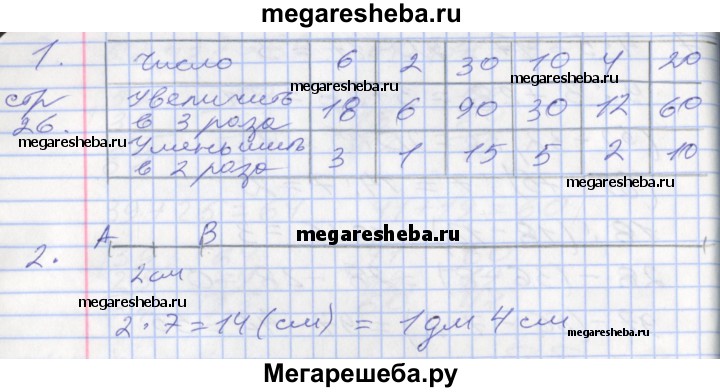 megaresheba.ru
1. Число 6 2 30 10 4 20
megaresheba.ru megaresheba.ru
стр 26. Увеличить в 3 раза 18 6 90 30 12 60
megaresheba.ru
Уменьшить в 2 раза 3 1 15 5 2 10
megaresheba.ru
A B
megaresheba.ru
2.
2 см
megaresheba.ru
2 · 7 = 14 (см) = 1 дм 4 см
megaresheba.ru
Мегарешеба.ру